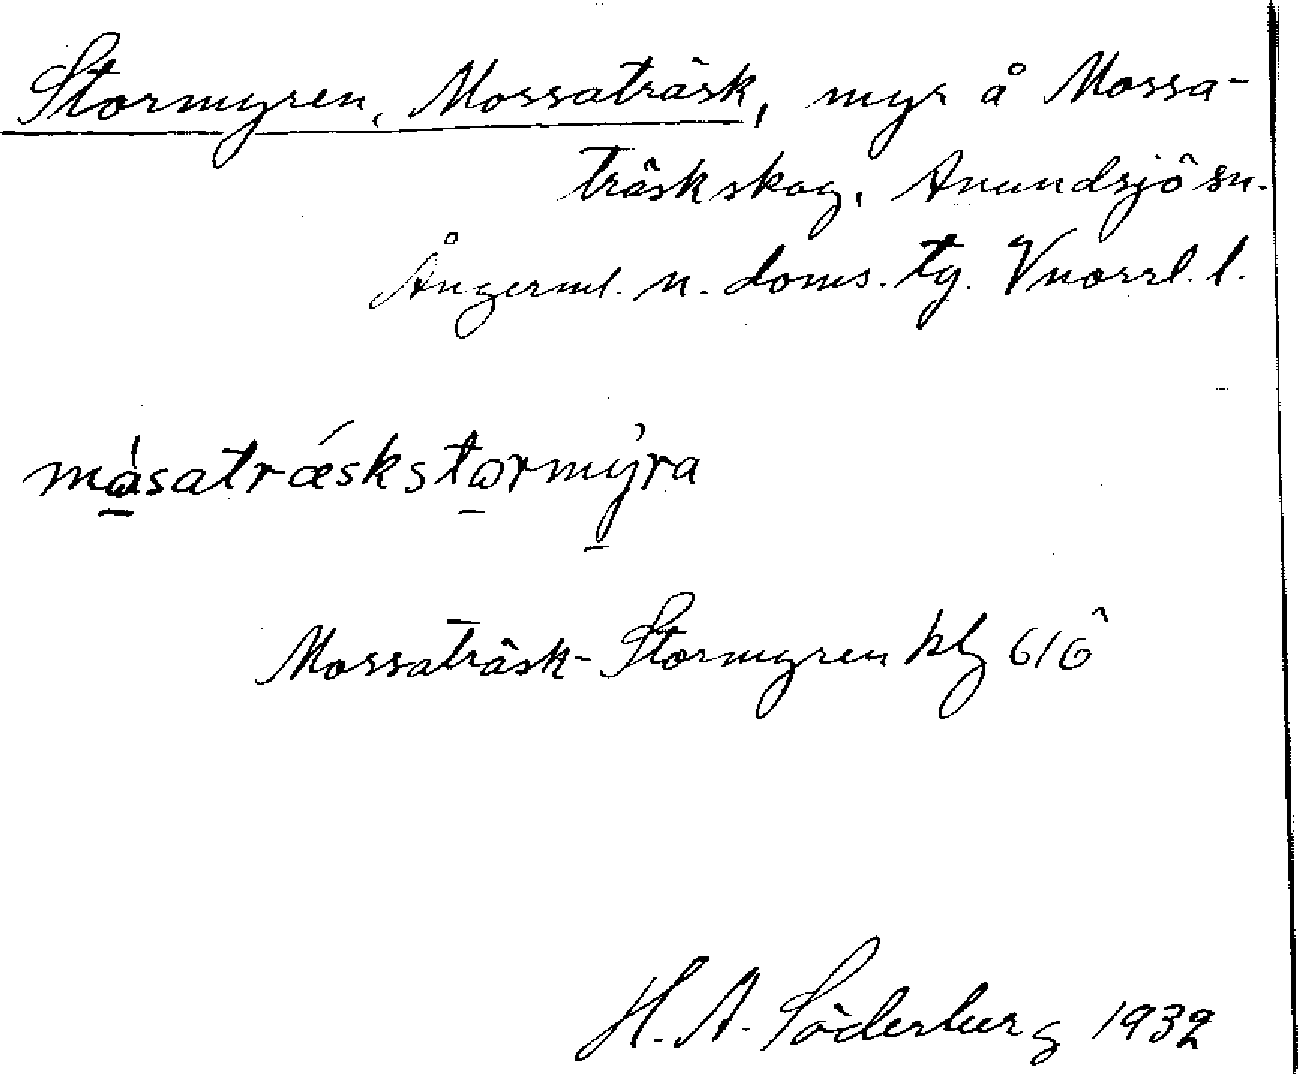 Stormyren, Mossaträsk, myr å Mossa-
träskskog, Anundsjö sn.
Ångerml. n. doms. tg. Vnorrl. l.
måsatræskstormyra
Mossaträsk-Stormyren klg 61 ö
H. A. Söderberg 1932